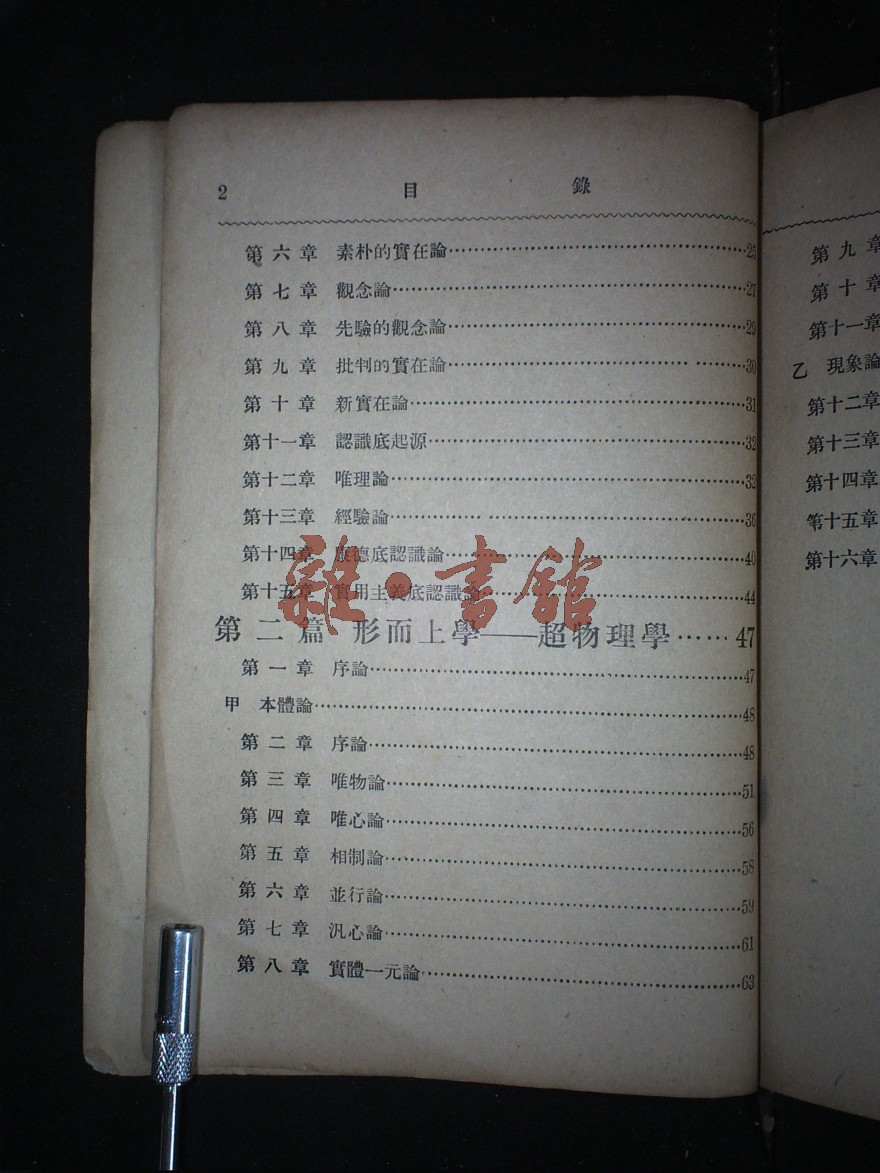 2 目 錄
第六章 素朴的實在論……25
第七章 觀念論……27
第八章 先驗的觀念論……29
第九章 批判的實在論……30
第十章 新實在論……31
第十一章 認識底起源……32
第十二章 唯理論……32
第十三章 經驗論……36
第十四章 康德底認識論……40
第十五章 實用主義底認識論……44
雜·書館
第二篇 形而上學——超物理學……47
第一章 序論……47
甲 本體論……48
第二章 序論……48
第三章 唯物論……51
第四章 唯心論……56
第五章 相制論……58
第六章 並行論……59
第七章 汎心論……61
第八章 實體一元論……63
第九章
第十章
第十一章
乙 現象論
第十二章
第十三章
第十四章
第十五章
第十六章